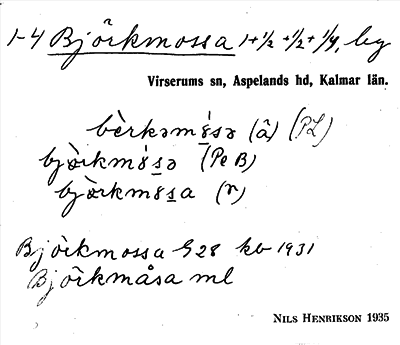 1-4 Björkmossa 1+1/2+1/2+1/4, beg
Virserums sn, Aspelands hd, Kalmar län.
bèrkəmɤ́sə (â) (PL)
bjæ̀rkmɤ́sə (Pe B)
bjæ̀rkmɤsa (r)
Björkmossa G28 kb 1931
Björkmåsa ml
NILS HENRIKSON 1935